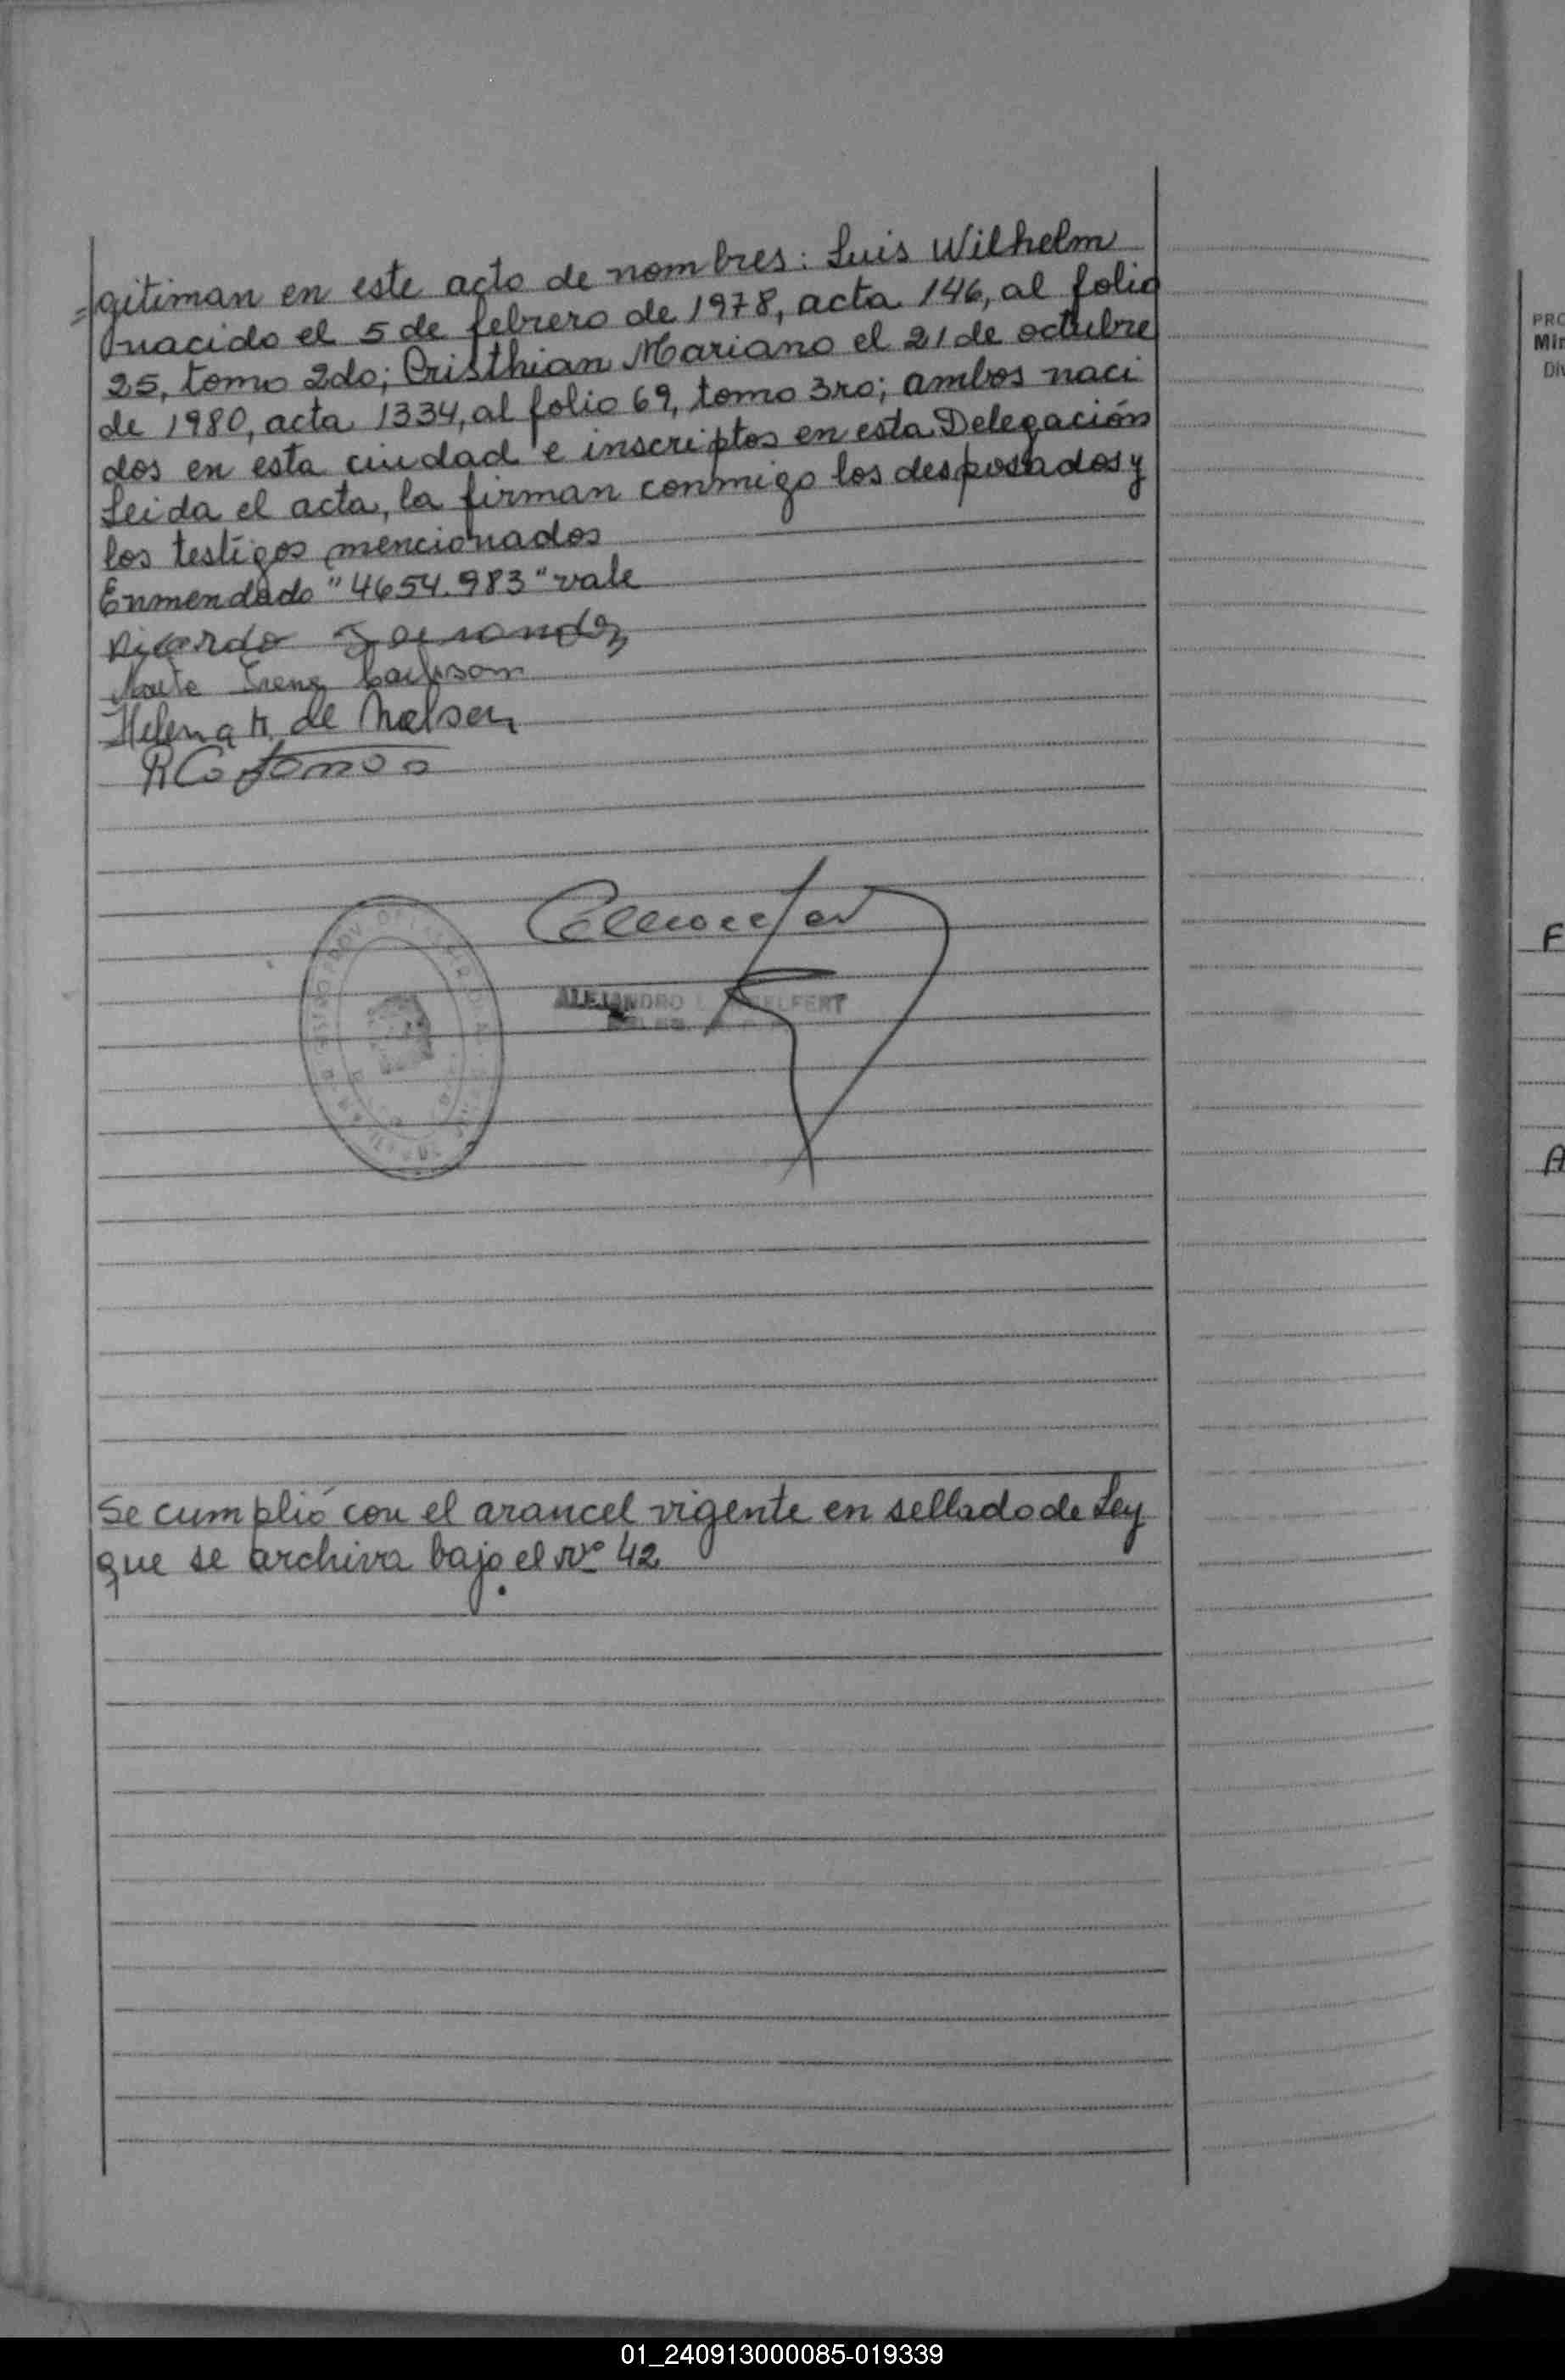 =gitiman en este acto de nombres: Luis Wilhelm
nacido el 5 de febrero de 1978, acta 146, al folio
25, tomo 2do; Cristhian Mariano el 21 de octubre
de 1980, acta 1334, al folio 69, tomo 3ro; ambos naci
dos en esta ciudad e inscriptos en esta Delegación
Leida el acta, la firman conmigo los desposados y
los testigos mencionados
Enmendado "4654.983" vale
Ricardo
Irene
Helena K. de Nelsen
ALEJANDRO
Se cumplió con el arancel vigente en sellado de Ley
que se archiva bajo el Nº 42
PRO
Min
Div
F
A
01_240913000085-019339